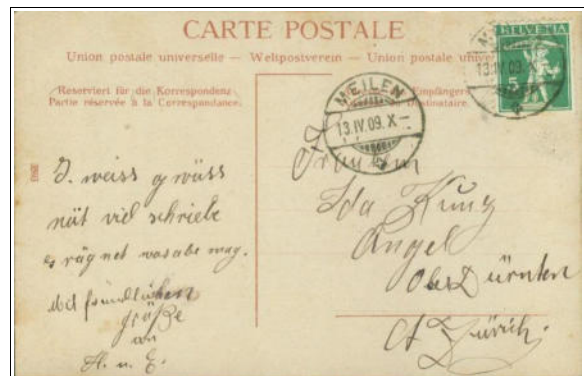 CARTE POSTALE
Union postale universelle — Weltpostverein — Union postale
Reserviert für die Korrespondenz
Partie réservée à la Correspondance.
Empfänger
Destinataire
HELVETIA
MEILEN
13.IV.09.X–
13.IV.09.
I. weiss gwüss
nüt viel schriebe
es rägnet was abe mag.
freundlichen
Grüße
an
H. u. E.
Fräulein
Ida Kung
Angel
Ober Dürnten
Ct. Zürich.